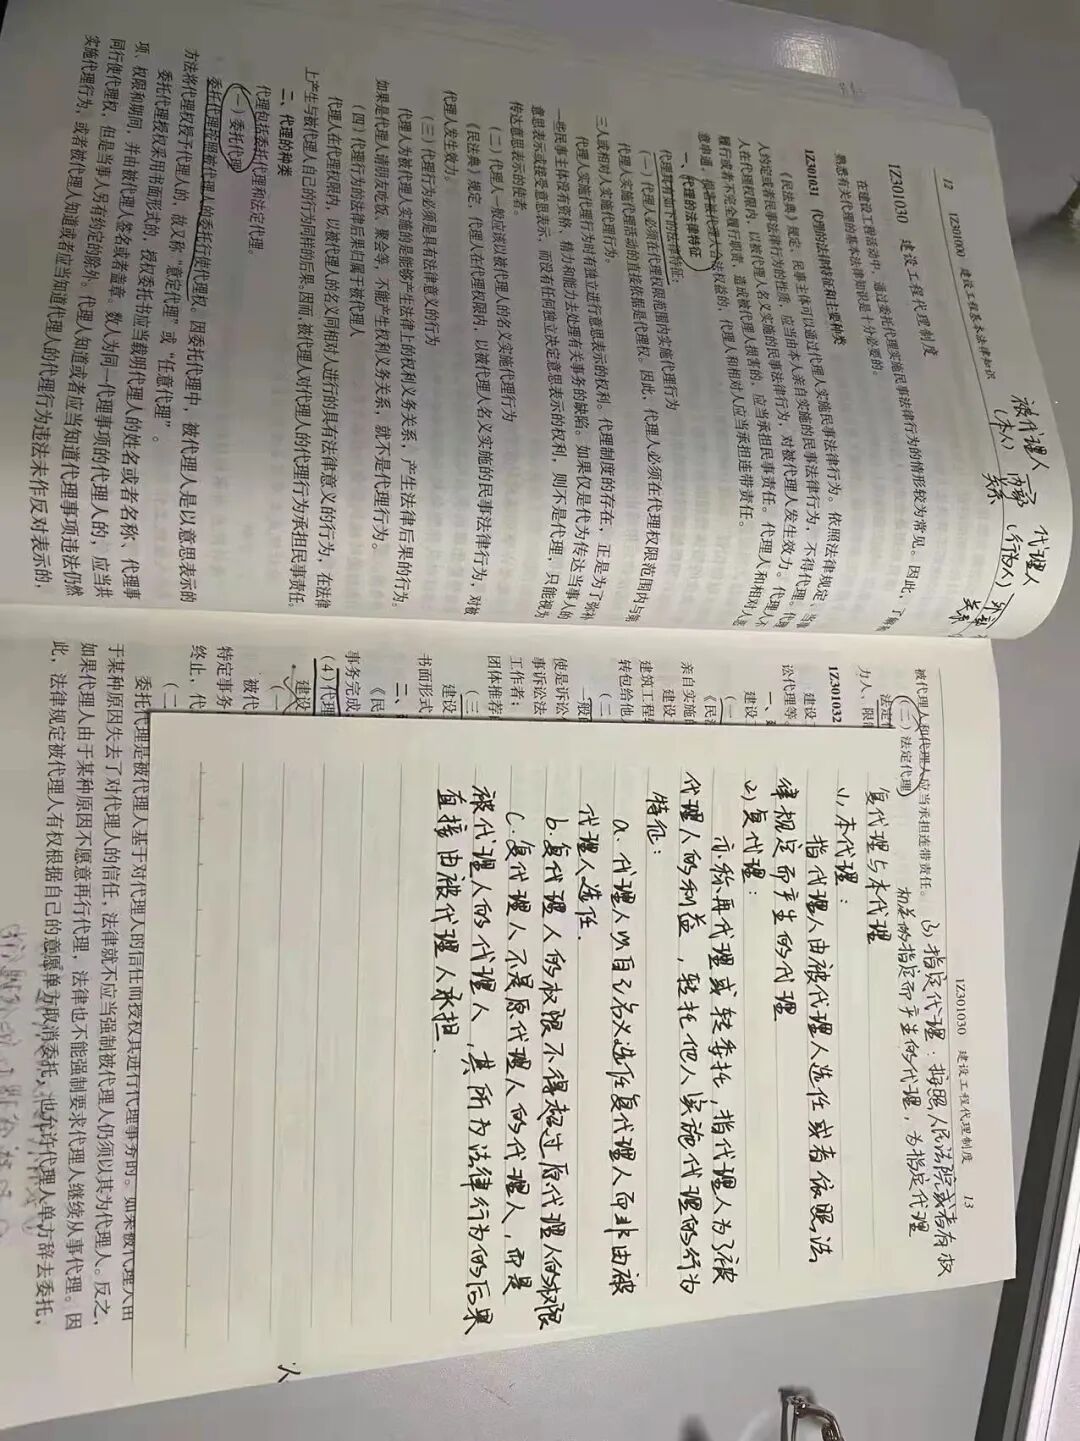 12 1Z301000 建设工程基本法律知识
被代理人 代理人
(本人) (行为人)
关系
1Z301030 建设工程代理制度
在建设工程活动中，通过委托代理实施民事法律行为的情形较为常见。因此，了解和
熟悉有关代理的基本法律知识是十分必要的。
1Z301031 代理的法律特征和主要种类
《民法典》规定，民事主体可以通过代理人实施民事法律行为。依照法律规定、
人约定或者民事法律行为的性质，应当由本人亲自实施的民事法律行为，不得代理。代理
人在代理权限内，以被代理人名义实施的民事法律行为，对被代理人发生效力。代理人不
履行或者不完全履行职责，造成被代理人损害的，应当承担民事责任。代理人和相对人恶
意串通，损害被代理人合法权益的，代理人和相对人应当承担连带责任。
一、代理的法律特征
代理具有如下的法律特征：
(一) 代理人必须在代理权限范围内实施代理行为
代理人实施代理活动的直接依据是代理权。因此，代理人必须在代理权限范围内与第
三人或相对人实施代理行为。
代理人实施代理行为时有独立进行意思表示的权利。代理制度的存在，正是为了弥补
一些民事主体没有资格、精力和能力去处理有关事务的缺陷。如果仅是代为传达当事人的
意思表示或接受意思表示，而没有任何独立决定意思表示的权利，则不是代理，只能视为
传达意思表示的使者。
(二) 代理人一般应该以被代理人的名义实施代理行为
《民法典》规定，代理人在代理权限内，以被代理人名义实施的民事法律行为，对被
代理人发生效力。
(三) 代理行为必须是具有法律意义的行为
代理人为被代理人实施的是能够产生法律上的权利义务关系，产生法律后果的行为。
如果是代理人请朋友吃饭、聚会等，不能产生权利义务关系，就不是代理行为。
(四) 代理行为的法律后果归属于被代理人
代理人在代理权限内，以被代理人的名义同相对人进行的具有法律意义的行为，在法律
上产生与被代理人自己的行为同样的后果。因而，被代理人对代理人的代理行为承担民事责任。
二、代理的种类
代理包括委托代理和法定代理。
(一) 委托代理
委托代理按照被代理人的委托行使代理权。因委托代理中，被代理人是以意思表示的
方法将代理权授予代理人的，故又称“意定代理”或“任意代理”。
委托代理授权采用书面形式的，授权委托书应当载明代理人的姓名或者名称、代理事
项、权限和期间，并由被代理人签名或者盖章。数人为同一代理事项的代理人的，应当共
同行使代理权，但是当事人另有约定的除外。代理人知道或者应当知道代理事项违法仍然
实施代理行为，或者被代理人知道或者应当知道代理人的代理行为违法未作反对表示的，
1Z301030 建设工程代理制度 13
被代理人和代理人应当承担连带责任。
(3) 指定代理：按照人民法院或者有权
机关的指定而产生的代理，为指定代理
(二) 法定代理
法定
力人、限制
1Z301032
讼代理等。
复代理与本代理
(1) 本代理：
指代理人由被代理人选任或者依照法
律规定而产生的代理
(2) 复代理：
亦称再代理或转委托，指代理人为了被
代理人的利益，转托他人实施代理的行为
特征：
a. 代理人以自己名义选任复代理人而非由被
代理人选任．
b. 复代理人的权限不得超过原代理人的权限
c. 复代理人不是原代理人的代理人，而是
被代理人的代理人，其所为法律行为的后果
直接由被代理人承担．
建设
亲自实施的
建筑工程
转包给他
一般
使是诉讼
事诉讼法
工作者；
团体推荐
(三)
建设
书面形式
二、
事务完成
(4) 代理
建设
被代
特定事务
终止，代
(二
委托代理是被代理人基于对代理人的信任而授权其进行代理事务的。如果被代理人由
于某种原因失去了对代理人的信任，法律就不应当强制被代理人仍须以其为代理人。反之，
如果代理人由于某种原因不愿意再行代理，法律也不能强制要求代理人继续从事代理。因
此，法律规定被代理人有权根据自己的意愿单方取消委托，也允许代理人单方辞去委托，